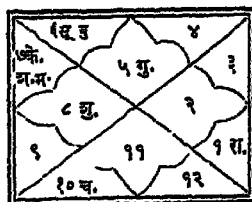 ६सू वु ४
७के.
श.म. ५ गु. ३
८ शु. २
९ ११ १ रा.
१०च. १२